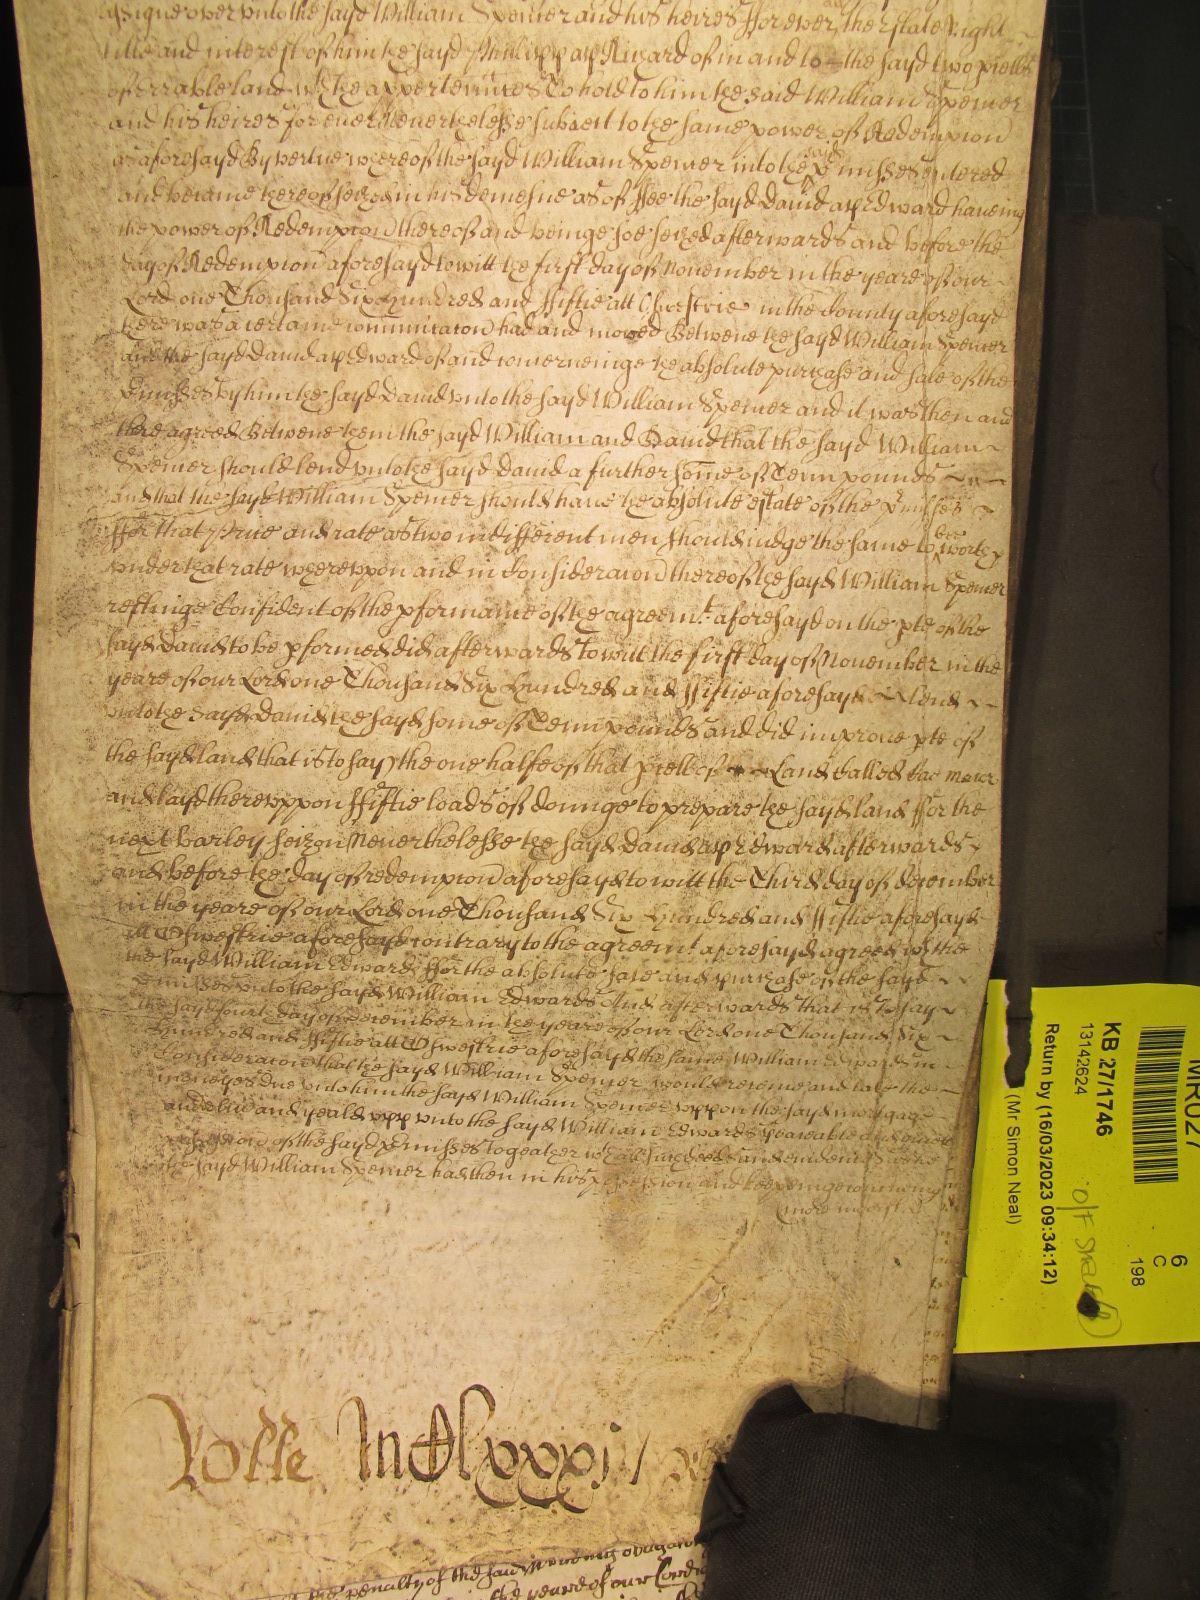 assigne over vnto the sayd William Spencer and his heires fforever the Estate Right
title and interest of him the sayd Phillipp ap Ricard of in and to the sayd two pcells
of errable land wth the appertennces To hold to him the said William Spencer
and his heires for ever Neverthelesse subiect to the same power of Redempcon
as aforesayd By vertue whereof the sayd William Spencer into the said pmisses entered
and became thereof seized in his demesne as of ffee the sayd David ap Edward haveing
the power of Redempcon thereof and beinge soe seized afterwards and before the
day of Redempcon aforesayd to witt the first day of November in the yeare of our
Lord one Thousand Six Hundred and ffiftie att Oswestrie in the County aforesayd
there was a certaine comunicacon had and moved Betweene the sayd William Spencer
and the sayd David ap Edward of and concerneinge the absolute purchase and sale of the
pmisses by him the sayd David vnto the sayd William Spencer and it was then and
there agreed Betweene them the sayd William and David that the sayd William
Spencer should lend vnto the sayd David a further some of Tenn pounds
and that the sayd William Spencer should have the absolute estate of the pmisses
ffor that price and rate as two indifferent men should iudge the same to bee worth
vnder that rate wherevppon and in Consideracon thereof the sayd William Spencer
restinge Confident of the pformance of the agreemt aforesayd on the pte of the
sayd David to be pformed did afterwards to witt the first day of November in the
yeare of our Lord one Thousand Six Hundred and ffiftie aforesayd lend
vnto the sayd David the sayd some of Tenn pounds and did improve pte of
the sayd land that is to say the one halfe of that pcell of Land Called
and layd therevppon ffiftie loads of dounge to prepare the sayd land ffor the
next barley seizon Neverthelesse the sayd David ap Edward afterwards
and before the day of redempcon aforesayd to witt the Third day of december
in the yeare of our Lord one Thousand Six Hundred and ffiftie aforesayd
att Oswestrie aforesayd contrary to the agreemt aforesayd agreed wth the
the sayd William Edwards ffor the absolute sale and purchase of the sayd
pmisses vnto the sayd William Edwards And afterwards that is to say
the sayd fourt day of december in the yeare of our Lord one Thousand Six
Hundred and ffiftie att Oswestrie aforesayd the same William Edwards in
Consideracon that the sayd William Spencer would receive and take the
moneyes due vnto him the sayd William Spencer vppon the sayd mortgage
and yeald vpp vnto the sayd William Edwards peaceable and quiet
possession of the sayd pmisses togeather wth all
the sayd William Spencer had then in his possession and keepeinge
Rolle MCClxxxj
the penalty of the said
the yeare of our Lord
MR027
6
C
198
KB 27/1746
13142624
Return by (16/03/2023 09:34:12)
(Mr Simon Neal)